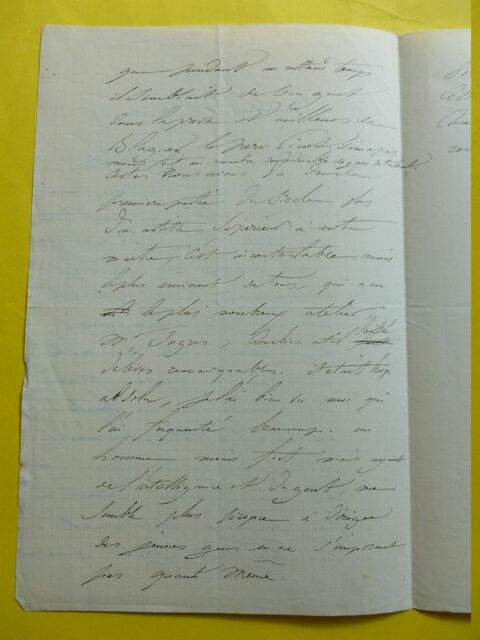 que pendant un certain temps
il semblait de bon goût
dans la presse et ailleurs de
Blaguer le père Picot,
mais fit un nombre considérable de gens de talent.
Certes nous avons vu dans la
première partie du siècle plus
d'un artiste supérieur à notre
maître, c'est incontestable, mais
le plus éminent de tous, qui a eu
le plus nombreux atelier
Mr Ingres, combien a-t-il laissé
d'élèves remarquables. Il était trop
absolu, je l'ai bien vu moi qui
l'ai fréquenté beaucoup. un
homme moins fort mais ayant
de l'intelligence et du goût, me
semble plus propre à diriger
des jeunes gens en ne s'imposant
pas quand même.